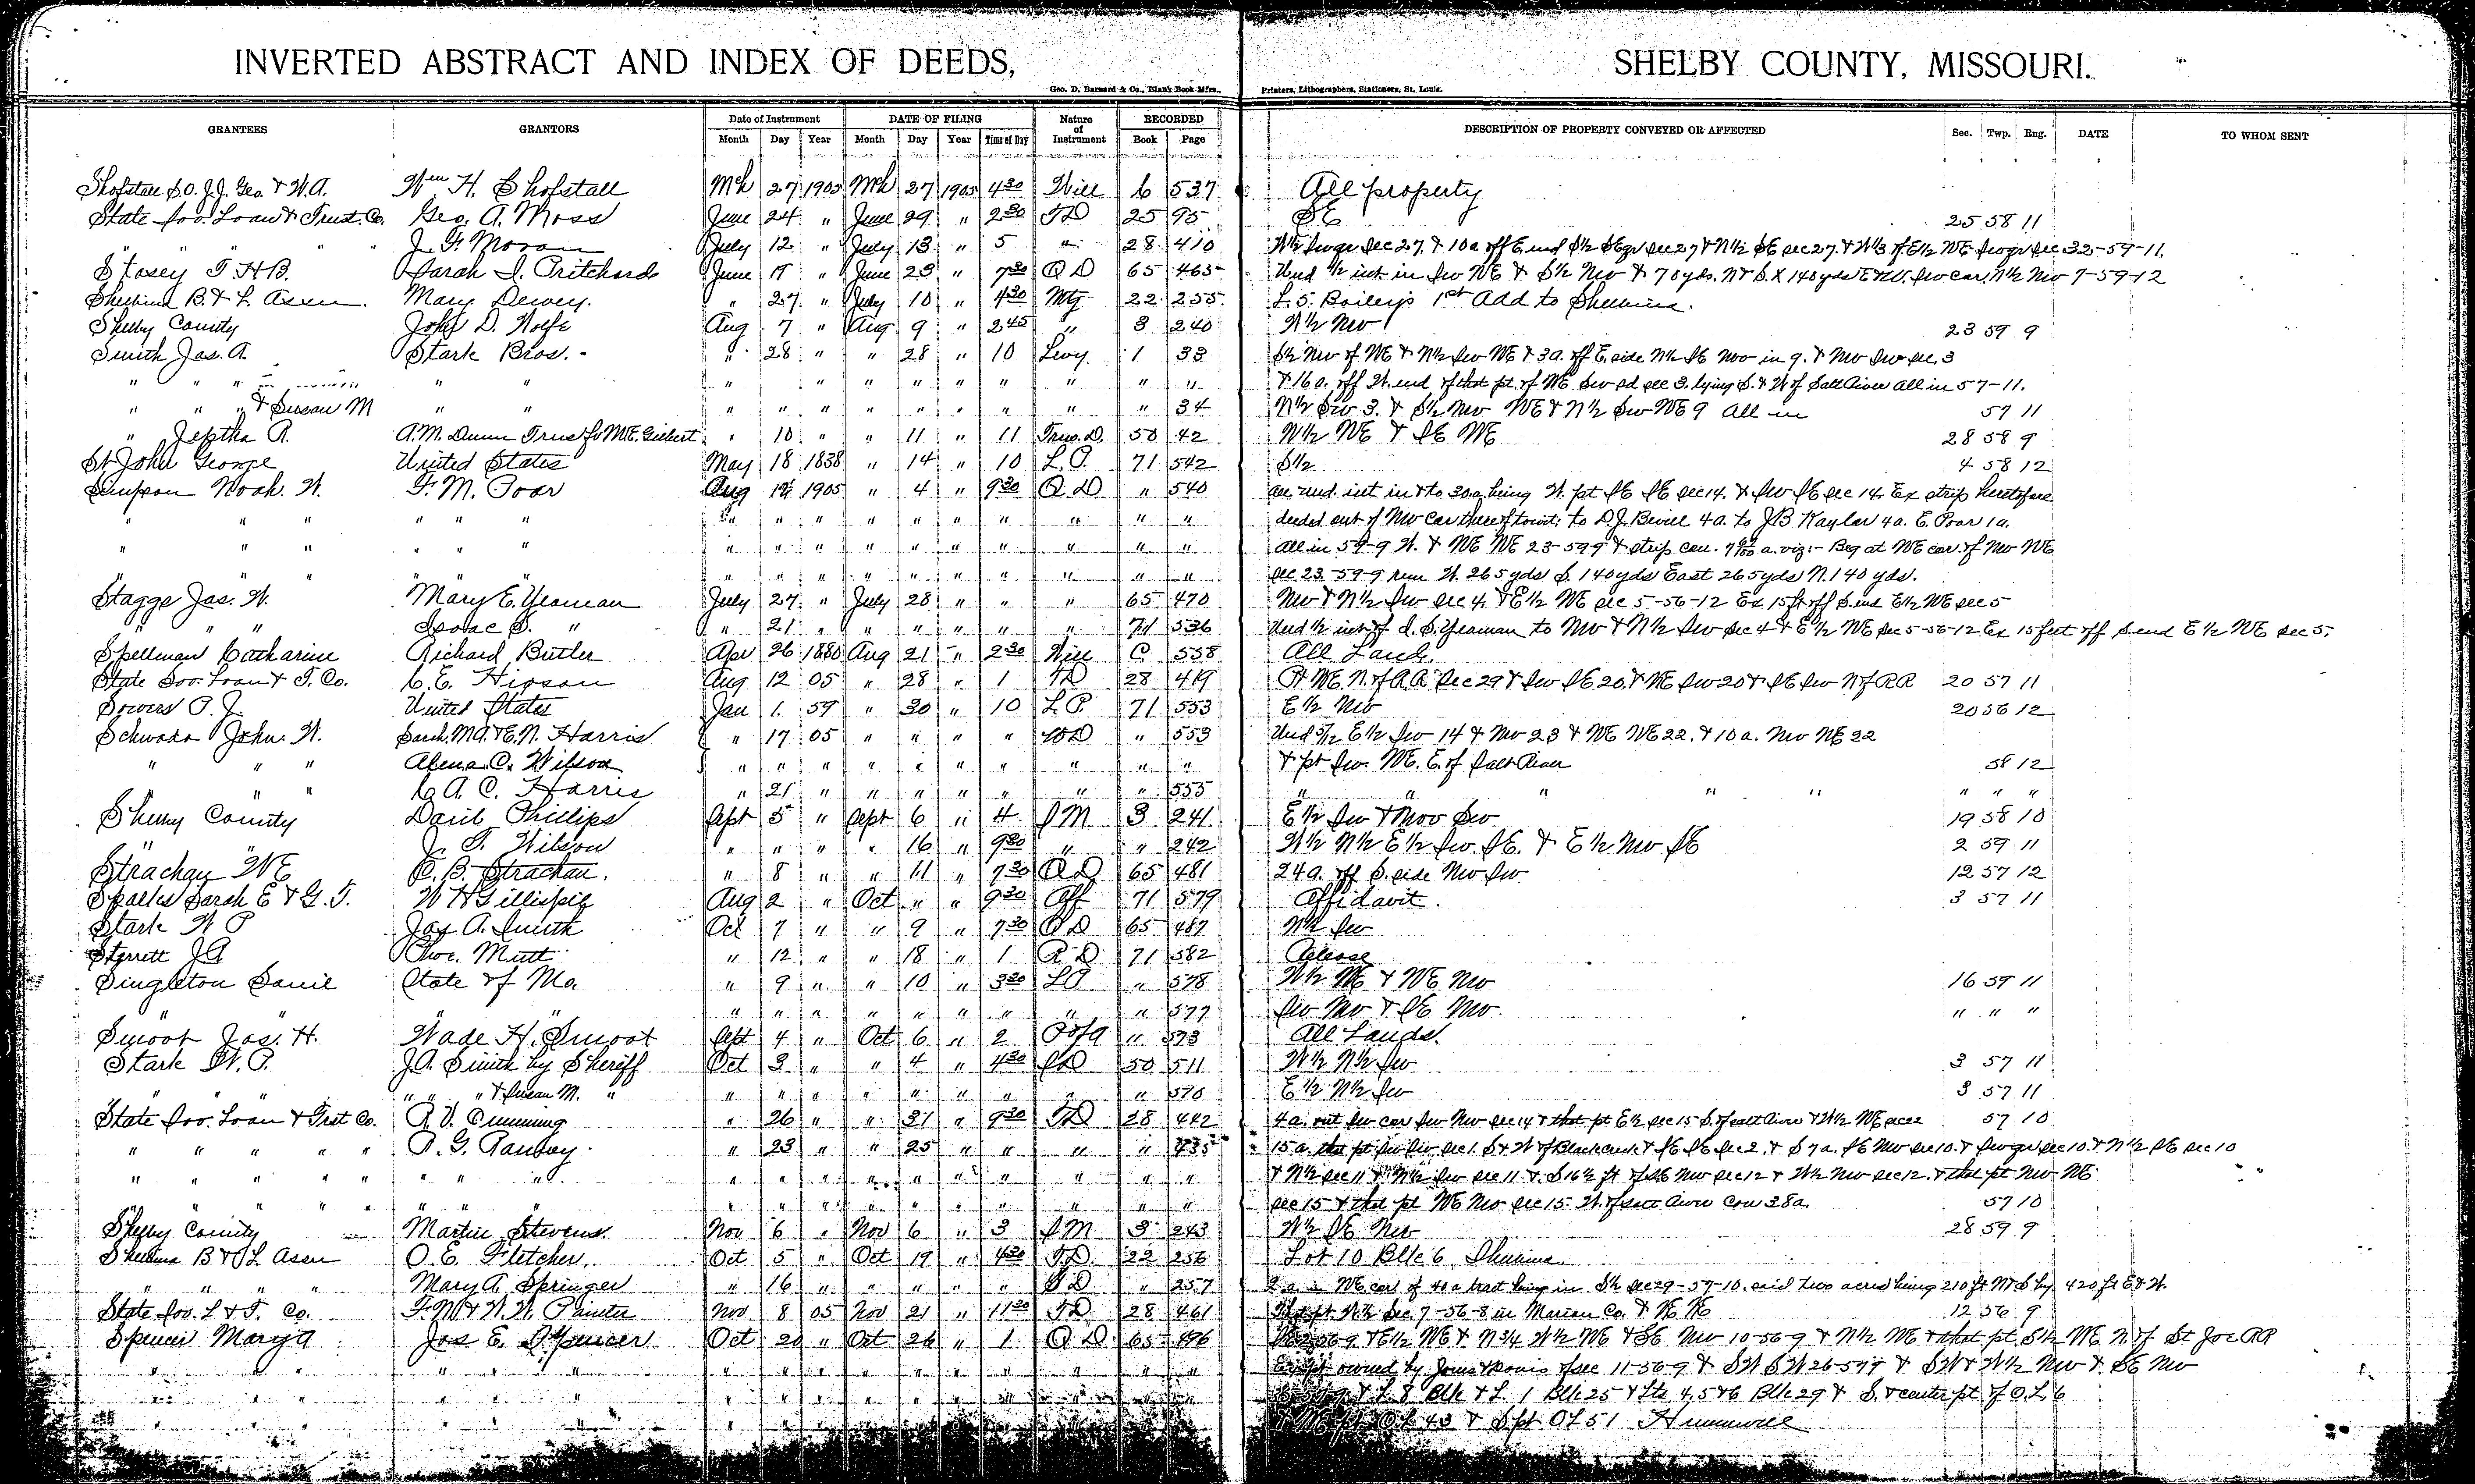 INVERTED ABSTRACT AND INDEX OF DEEDS, SHELBY COUNTY, MISSOURI.
Geo. D. Barnard & Co., Blank Book Mfrs., Printers, Lithographers, Stationers, St. Louis.
GRANTEES GRANTORS Date of Instrument DATE OF FILING Nature of Instrument RECORDED DESCRIPTION OF PROPERTY CONVEYED OR AFFECTED Sec. Twp. Rng. DATE TO WHOM SENT
Month Day Year Month Day Year Time of Day Book Page
Shofstall S.O. J.J. Geo. & W.A. Wm H. Shofstall Mch 27 1905 Mch 27 1905 4 30 Will 6 537 All property
State Sav. Loan & Trust Co. Geo. A. Moss June 24 " June 29 " 2 30 TD 25 95 SE 25 58 11
" " " " J. F. Moran July 12 " July 13 " 5 " 28 410 W½ Swqr Sec 27 & 10a off E end S½ SEqr Sec 27 & N½ SE sec 27 & W⅓ of E½ NE Swqr Sec 32-59-11.
Stacey T. H. B. Sarah I. Pritchards June 17 " June 23 " 7 30 QD 65 465 Und ½ int in Sw NE & S½ Nw & 70yds. N & S. X 140yds E & W. Sw cor. N½ Nw 7-59-12
Shelbina B. & L. Assn. Mary Dewey. " 27 " July 10 " 4 30 Mtg 22 255 L. 5. Bailey's 1st Add to Shelbina.
Shelby County John D. Wolfe Aug 7 " Aug 9 " 2 45 " 3 240 W½ Nw 23 59 9
Smith Jas. A. Stark Bros. " 28 " " 28 " 10 Levy 1 33 S½ Nw of NE & N½ Sw NE & 3a. off E. side N½ SE Nw in 9. & Nw Sw sec. 3
" " " " " " " " " " " " " " & 16 a. off W. end of that pt. of NE Sw sd sec 3. lying S. & W of Salt River all in 57-11.
" " " & Susan M " " " " " " " " " " " 34 N½ Sw 3. & S½ Nw NE & N½ Sw NE 9 All in 57 11
" Jeptha R. A.M. Dunn Trus for M.E. Gilbert " 10 " " 11 " 11 Trus. D. 50 42 W½ NE & SE NE 28 58 9
St John George United States May 18 1838 " 14 " 10 L.P. 71 542 S½ 4 58 12
Simpson Noah. W. F. M. Poar Aug 1905 " 4 " 9 30 QD " 540 all und. int in & to 30a being W. pt SE SE Sec 14. & Sw SE Sec 14. Ex strip heretofore
" " " " " " " " " " " " " " " " deeded out of Nw Cor thereof towit: to D.J. Bevill 4a. to J.B Kaylor 4a. E. Poar 1a.
" " " " " " " " " " " " " " " " all in 59-9 W. & NE NE 23-59 9 & strip con. a. viz:- Beg at NE cor. of Nw NE
" " " " " " " " " " " " " " " " sec 23-59-9 run W. 265yds S. 140yds East 265yds N. 140 yds.
Stagge Jas. W. Mary E. Yeaman July 27 " July 28 " " " 65 470 Nw & N½ Sw sec 4. & E½ NE sec 5-56-12 Ex 15 ft off S. end E½ NE sec 5
" " " Isaac S. " " 21 " " " " " " 71 536 Und ½ int of I. S. Yeaman to Nw & N½ Sw sec 4 & E½ NE Sec 5-56-12 Ex. 15 feet off S end E½ NE sec 5.
Spellman Catharine Richard Butler Apr 26 1880 Aug 21 " 2 30 Will C 558 All Land.
State Sav. Loan & T. Co. C. E. Hixson Aug 12 05 " 28 " 1 TD 28 419 Pt NE N. of RR Sec 29 & Sw SE 20. & NE Sw 20 & SE Sw N of RR 20 57 11
Sowers P. J. United States Jan 1. 59 " 30 " 10 L.P. 71 553 E½ Nw 20 56 12
Schwada John. W. Sarah. M.A. & E.N. Harris " 17 05 " " " " WD " 553 Und E½ Sw 14 & Nw 23 & NE NE 22. & 10 a. Nw NE 22
" " " Alena. C. Wilson " " " " " " " " " " & pt Sw. NE. E. of Salt River 58 12
" " C. A. C. Harris " 21 " " " " " " " 555 " " " " " " " "
Shelby County David Phillips Sept 5 " Sept 6 " 4 SM 3 241 E½ Sw & Nw Sw 19 58 10
" " J. T. Wilson " " " " 16 " 9 30 " " 242 W½ N½ E½ Sw. SE. & E½ Nw SE 2 59 11
Strachan WE C. B. Strachan. " 8 " " 11 " 7 30 QD 65 481 24a. off S. side Nw Sw 12 57 12
Sparks Sarah E & G. T. W H Gillispie Aug 2 " Oct " " 9 30 Aff 71 579 Affidavit. 3 57 11
Stark W P Jas A. Smith Oct 7 " " 9 " 7 30 QD 65 487 N½ Sw
Sterrett J A Chor. Mutt " 12 " " 18 " 1 R D 71 582 Release
Singleton Davie State of Mo. " 9 " " 10 " 3 30 LP " 578 W½ NE & NE Nw 16 59 11
" " " " " " " " " " " " 577 Sw Nw & SE Nw. " " "
Smoot Jas. H. Wade H. Smoot Sept 4 " Oct 6 " 2 PofA " 573 All Lands.
Stark W. P. J A. Smith by Sheriff Oct 3 " " 4 " 4 30 SD 50 511 W½ N½ Sw 3 57 11
" " " " " & Susan M. " " " " " " " " " " 570 E½ N½ Sw 3 57 11
State Sav. Loan & Trst Co. R. V. Cumming " 26 " " 31 " 9 30 TD 28 442 4 a. out Sw cor Sw Nw Sec 14 & that pt E½ sec 15 S. of salt River & W½ NE 57 10
" " " " " R. G. Ransey. " 23 " " 25 " " " " 435 15 a. that pt Sw Sw sec 1. S & W of Black creek & SE SE sec 2. & S 7a. SE Nw sec 10. & Swqr sec 10. & N½ SE sec 10
" " " " " " " " " " " " " " " " " & N½ sec 11 & N½ Sw sec 11 & S 16½ ft of SE Nw sec 12 & W½ Nw sec 12. & that pt Nw NE
" " " " " " " " " " " " " " " " " sec 15 & that pt NE Nw sec 15. W. of salt River Con 38a. 57 10
Shelby County Martin Stevens. Nov 6 " Nov 6 " 3 SM 3 243 W½ SE Nw 28 59 9
Shelbina B & L Assn O. E. Fletcher. Oct 5 " Oct 19 " 4 30 TD 22 256 Lot 10 Blk 6 Shelbina.
" " " " Mary A. Springer " 16 " " " " " TD " 257 2 a in NE cor of 40a tract lying in S½ Sec 29-57-10. said two acres being 210 ft N & S by 420 ft E & W.
State Sav. L & T. Co. F. M & W. W. Painter Nov 8 05 Nov 21 " 11 30 TD 28 461 pt W½ Sec 7-56-8 in Marion Co. & NE NE 12 56 9
Spencer Mary A Jas E. Spencer Oct 20 " Oct 26 " 1 QD 65 496 56 9 & E½ NE & N¾ W½ NE & SE Nw 10-56-9 & N½ NE & that pt S½ NE N. of St Joe RR
" " " " " " " " " " " " " " " owned by of sec 11-56-9 & SW SW 26-57-9 & SW & W½ Nw & SE Nw
" " " " " " " " " " " " " " " & L 8 Blk & L. 1 Blk 25 & Lts 4.5 & 6 Blk 29 & S. & center pt of O.L. 6
" " " " " " " " " " " " " " " & NE pt OL 43 & S pt OL 51 Hunnewell